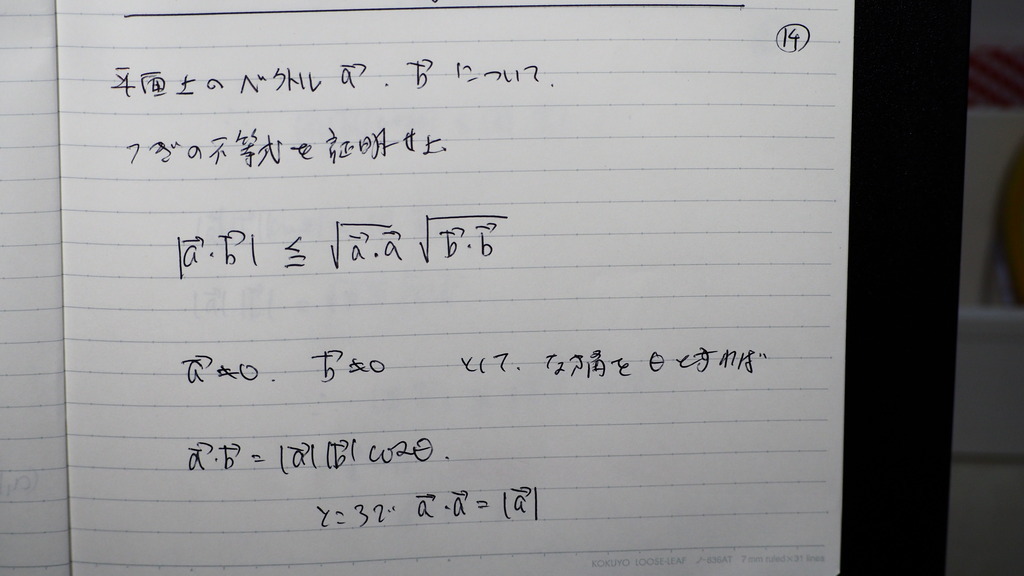 ⑭
平面上のベクトル a⃗, b⃗ について,
つぎの不等式を証明せよ
|a⃗・b⃗| ≦ √(a⃗・a⃗) √(b⃗・b⃗)
a⃗≠0, b⃗≠0 として, なす角を θ とすれば
a⃗・b⃗ = |a⃗||b⃗| cosθ.
ところで a⃗・a⃗ = |a⃗|
KOKUYO LOOSE-LEAF ノ-836AT 7mm ruled×31 lines